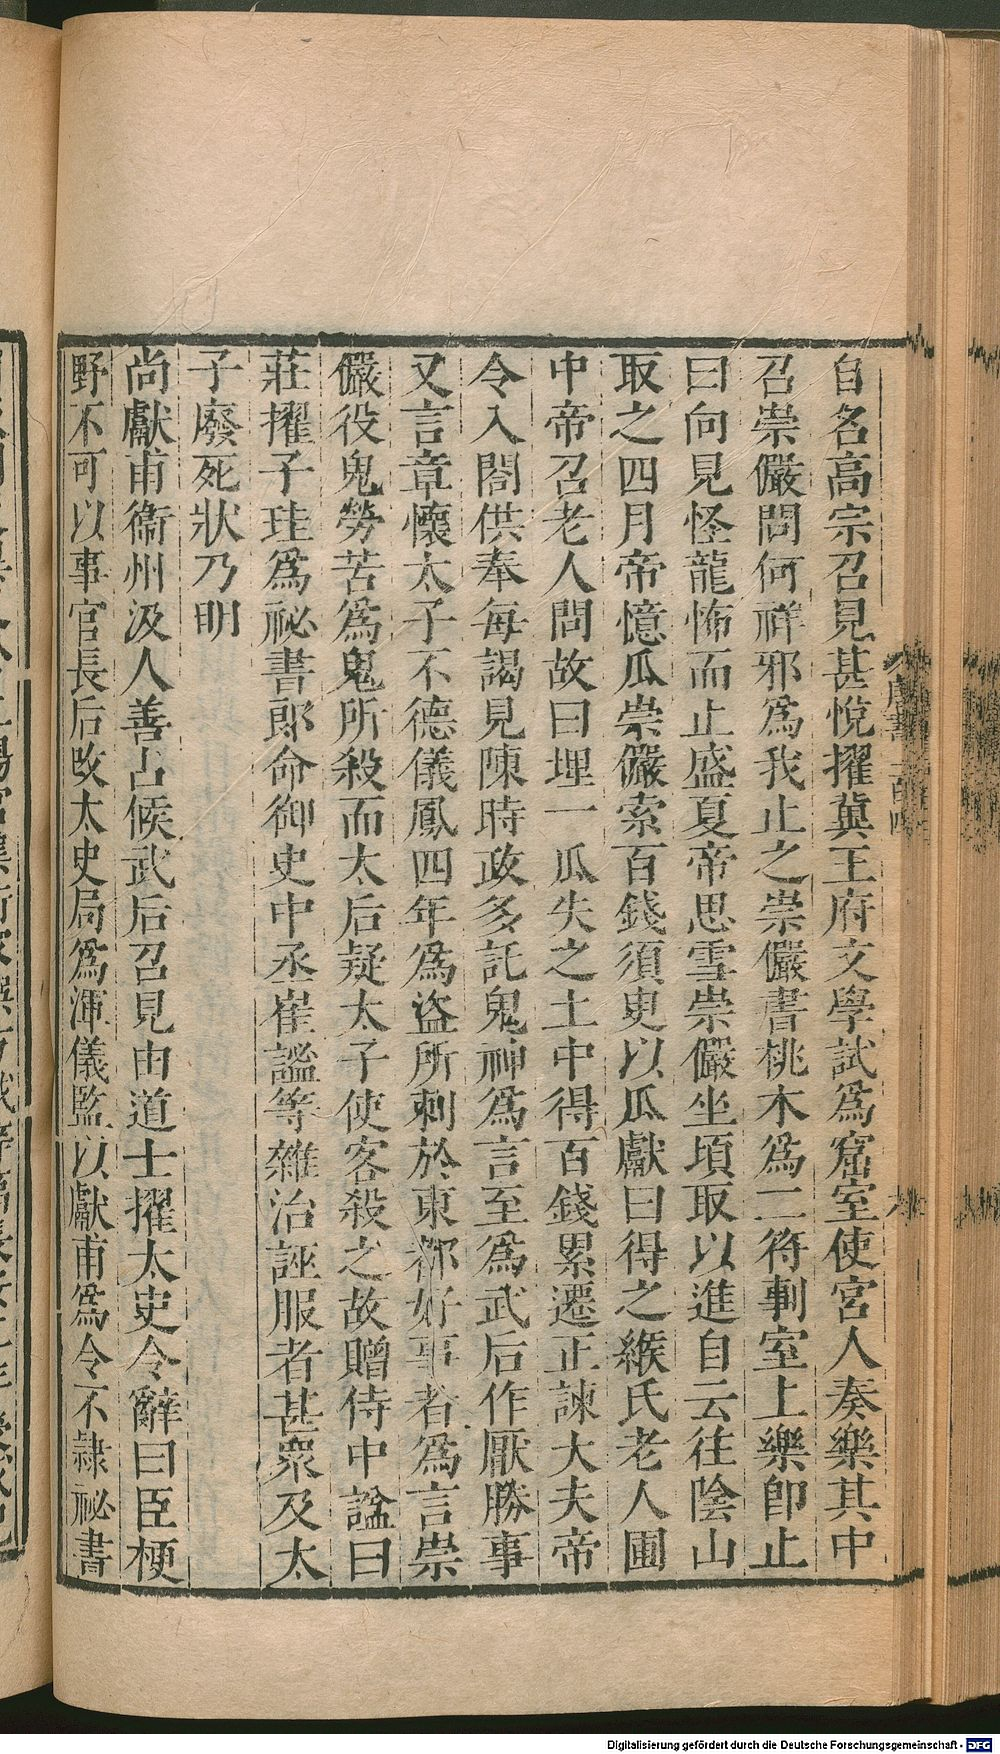 自名高宗召見甚悅擢冀王府文學試爲窟室使宮人奏樂其中
召崇儼問何祥邪爲我止之崇儼書桃木爲二符剚室上樂即止
曰向見怪龍怖而止盛夏帝思雪崇儼坐頃取以進自云往陰山
取之四月帝憶瓜崇儼索百錢須臾以瓜獻曰得之緱氏老人圃
中帝召老人問故曰埋一瓜失之土中得百錢累遷正諫大夫帝
令入閤供奉每謁見陳時政多託鬼神爲言至爲武后作厭勝事
又言章懷太子不德儀鳳四年爲盜所刺於東都好事者爲言崇
儼役鬼勞苦爲鬼所殺而太后疑太子使客殺之故贈侍中諡曰
莊擢子珪爲祕書郎命御史中丞崔謐等雜治誣服者甚衆及太
子廢死狀乃明
尚獻甫衞州汲人善占候武后召見由道士擢太史令辭曰臣梗
野不可以事官長后改太史局爲渾儀監以獻甫爲令不隷祕書
唐書
Digitalisierung gefördert durch die Deutsche Forschungsgemeinschaft - DFG